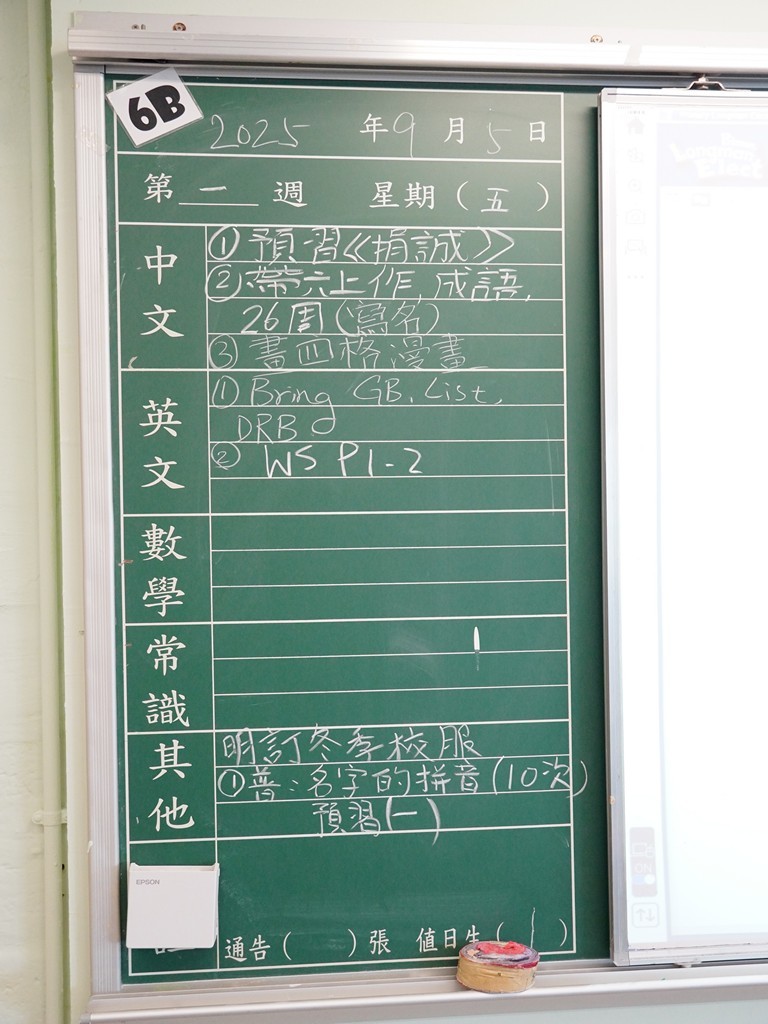 6B
2025 年 9 月 5 日
第 一 週 星期 ( 五 )
中文
① 預習《捐誠》
② 帶六上作, 成語,
26周(寫名)
③ 畫四格漫畫
英文
① Bring GB, List,
DRB
② WS P1-2
數學
常識
其他
明訂冬季校服
① 普:名字的拼音(10次)
預習(一)
EPSON
通告 ( ) 張 值日生 ( 1 )
ON